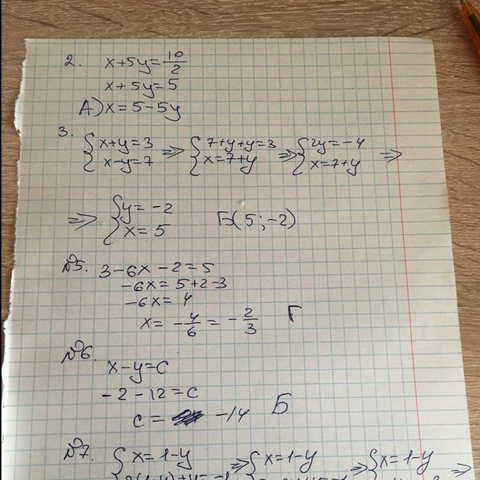 2. x+5y=10/2
x+5y=5
А) x=5-5y
3. {x+y=3 x-y=7 => {7+y+y=3 x=7+y => {2y=-4 x=7+y =>
=> {y=-2 x=5 Б(5;-2)
№5. 3-6x-2=5
-6x=5+2-3
-6x=4
x=-4/6=-2/3 Г
№6.
x-y=c
-2-12=c
c= -14 Б
№7. {x=1-y => {x=1-y => {x=1-y =>